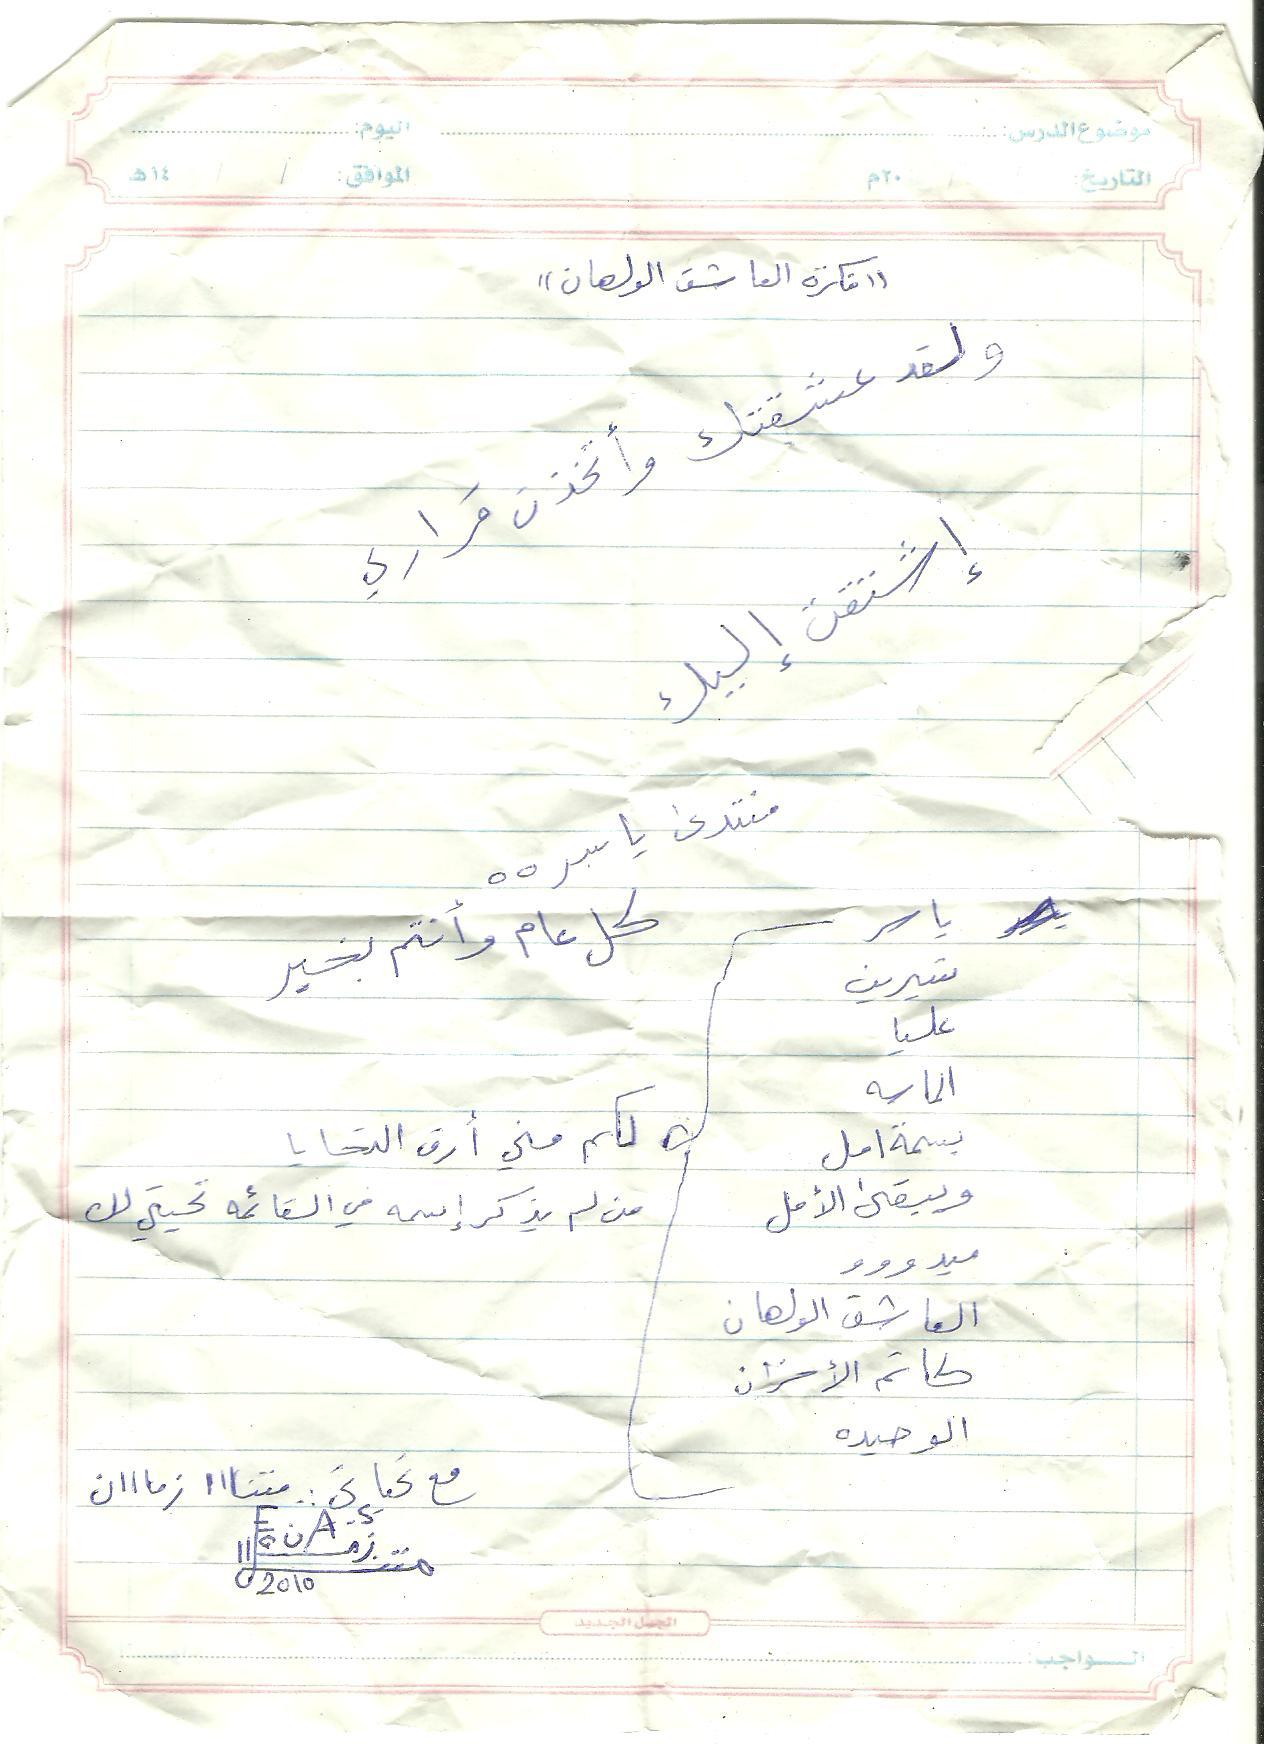 موضوع الدرس: اليوم:
التاريخ: / / ٢٠م الموافق: / / ١٤هـ
"فكرة العاشق الولهان"
ولقد عشقتك وأتخذت قراري
إشتقت إليك
منتدى ياسر ٥٥
كل عام وأنتم بخير
ياسر
شيرين
عليا
الماسه
بسمة امل
ويبقى الأمل
ميدووو
العاشق الولهان
كاتم الأحزان
الوحيده
لكم مني أرق التحايا
من لم يذكر إسمه في القائمه تحيتي لك
مع تحياتي .. متنااا زماااان
2010
الجيل الجديد
الــواجب: